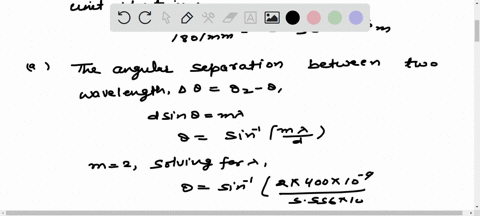 unit
180/mm = m
(a) The angular separation between two
wavelength, Δθ = θ₂-θ,
dsinθ = mλ
θ = sin⁻¹ (mλ/d)
m=2, solving for λ,
θ = sin⁻¹ (2×400×10⁻⁹
5.556×10